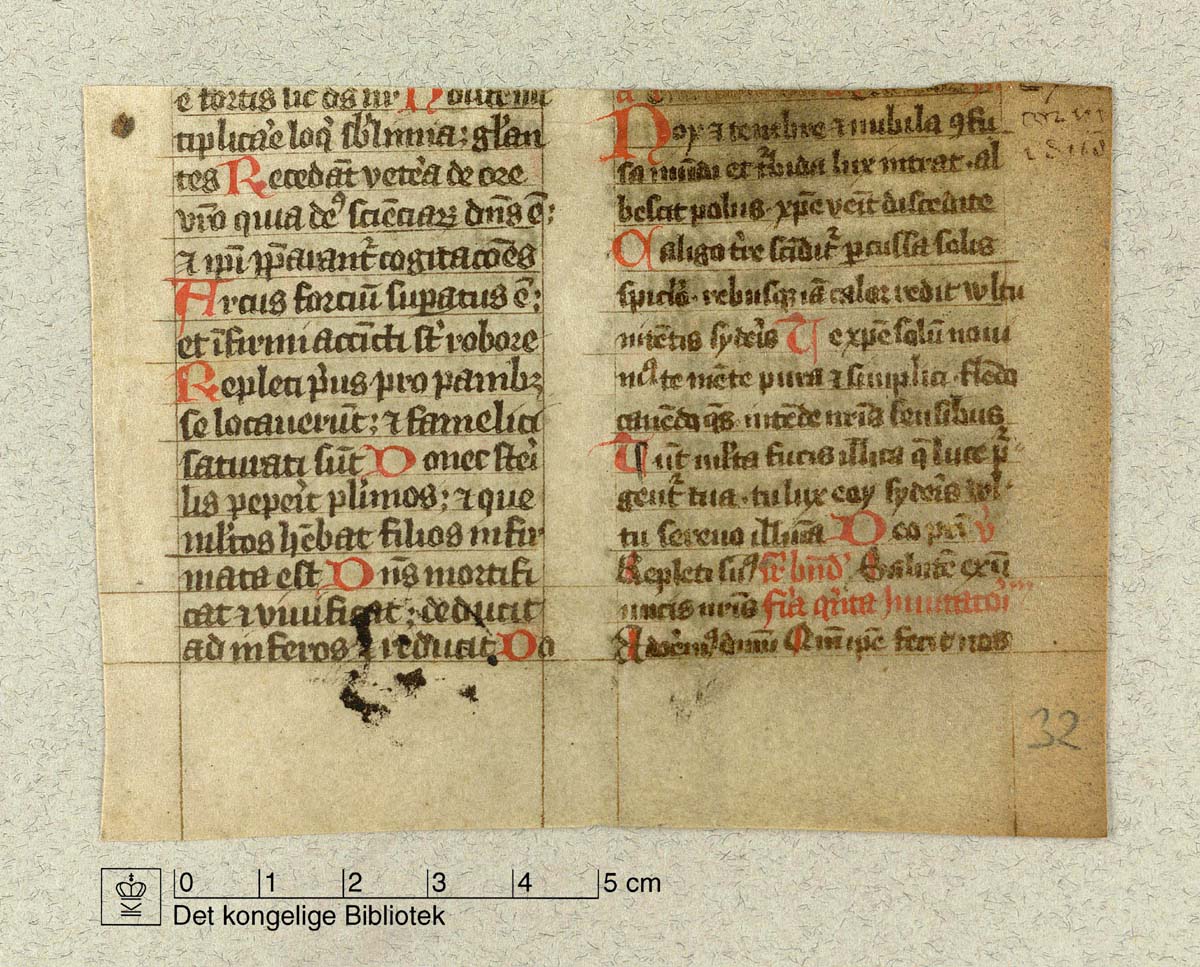 ē fortis sic ds nr̄ Nolite ml̓
tiplicar̓e loq̓ sb̓limia; gl̓an
tes Recedāt vetēa de ore
vr̄o quia deꝰ sciēciaꝝ dn̄s ē;
⁊ ip̄i p̄parant̓ cogitacōes
Arcus forciū supatus ē;
et īfirmi accīcti st̄ robore
Repleti p̓us pro panibꝫ
se locauerūt; ⁊ famelici
saturati sūt Donec stēi
lis pepeīt pl̓imos; ⁊ que
ml̓tos hēbat filios infir
mata est Dn̄s mortifi
cat ⁊ viuificat; deducit
ad inferos ⁊ reducit Do
Nox ⁊ tenebre ⁊ nubila ꝯfu
sa mūdi et t̓bida lux intrat al
bescit polus xp̄e venit discedite
Caligo t̓re scīdit̓ ꝑcussa solis
spiclo rebusqꝫ iā calor redit wltu
nitētis syderis Te xp̄e solū noui
mꝰ te mēte pura ⁊ simplici flēdo
canēdo q̄s intēde nr̄is sensibus
Sūt ml̓ta fucis illita q̄ luce p̓
gent̓ tua tu lux eoy syderis wl
tu sereno illumīa Deo pri v̓
Repleti sumꝰ Salutē exū
nucis nr̄is fīa q̓nta Inuitatoī
Adorēmꝰ dnm̄ Qm̄ ip̄e fecit nos
32
0 1 2 3 4 5 cm
Det kongelige Bibliotek